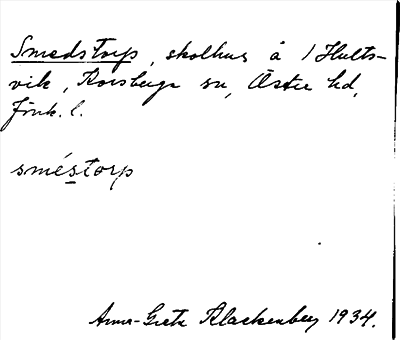 Smedstorp, skolhus å 1 Hults-
vik, Korsberga sn, Östra hd,
Jönk. l.
sméstorp
Anna-Greta Klackenberg 1934.